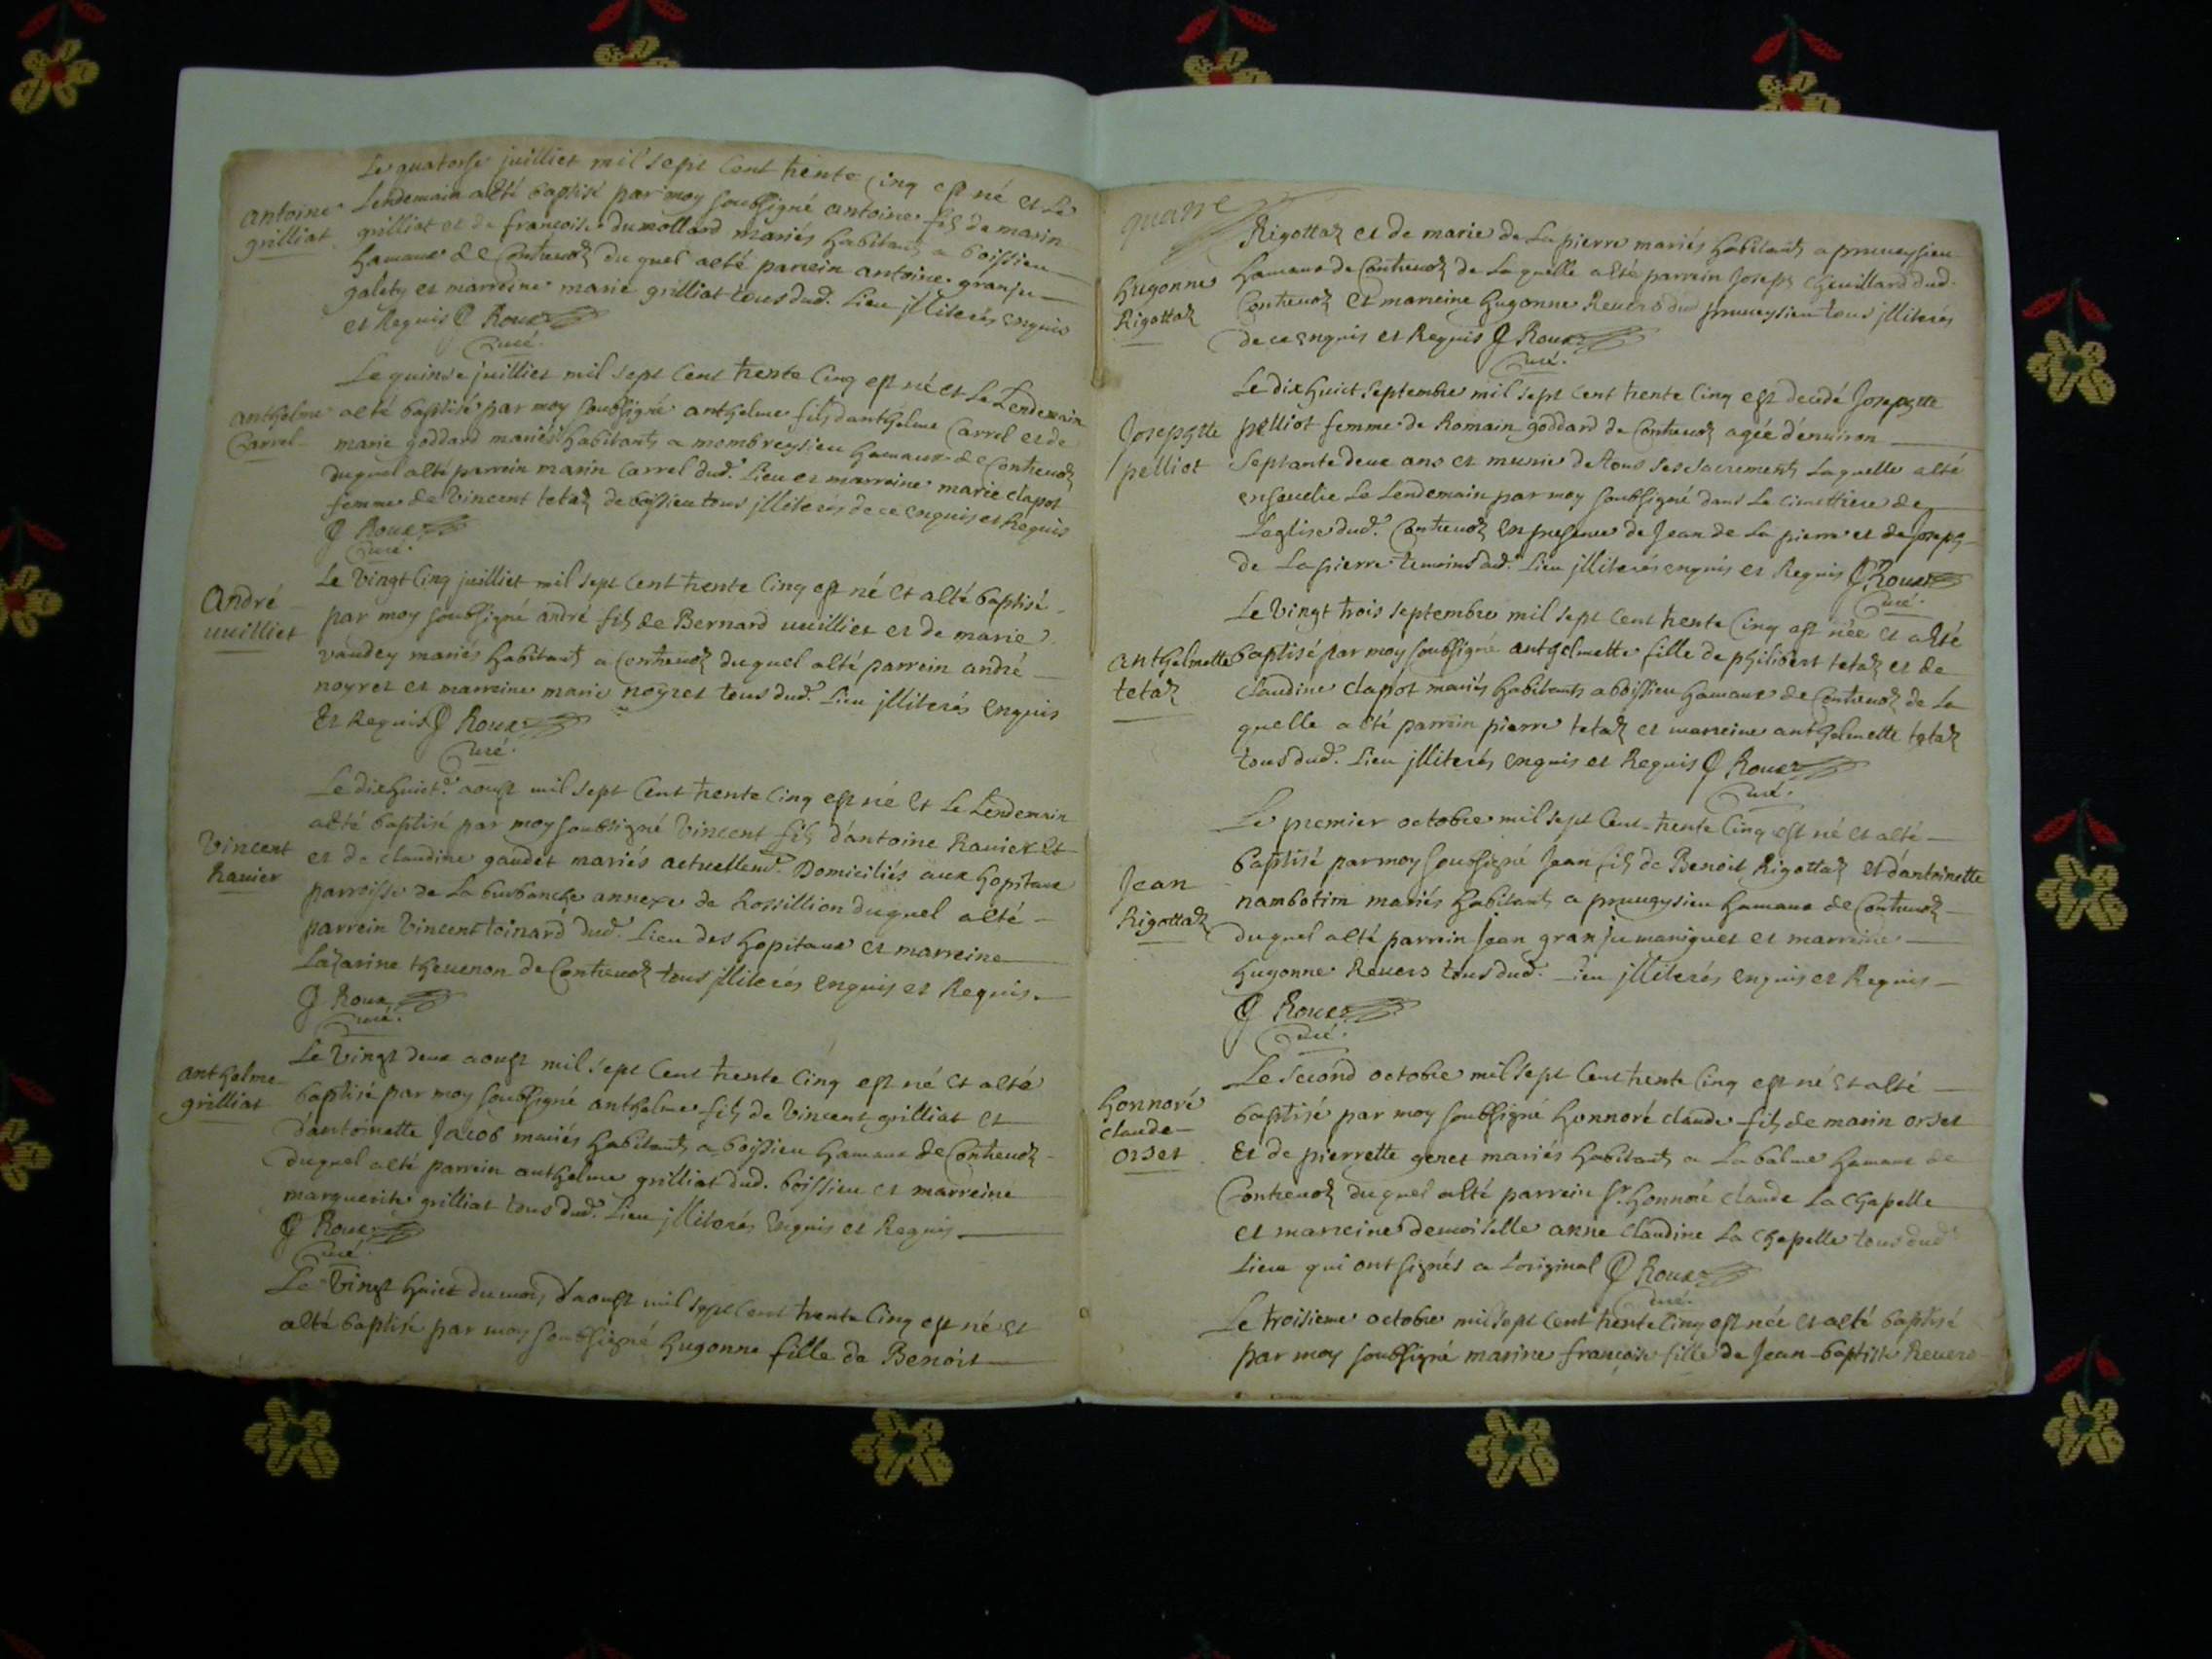 Le quatorse juilliet mil sept cent trente cinq est né et Le
Lendemain a été baptisé par moy soubsigné antoine fils de marin
antoine
grilliat
grilliat et de francoise dumollard mariés habitants a boissieu
hamaux de Contrevoz du quel a été parrein antoine granju
galety et marreine marie grilliat tous dud. Lieu jlliterés enquis
et Requis J Roux
Curé.
Le quinse juilliet mil sept cent trente cinq est né et Le Lendemain
anthelme
Carrel
a été baptisé par moy soubsigné anthelme fils d'anthelme Carrel et de
marie goddard mariés habitants a mombreysieu hamaux de Contrevoz
duquel a été parrein marin Carrel dud. Lieu et marreine marie clapot
femme de Vincent tetaz de boissieu tous jlliterés de ce enquis et Requis
J Roux
Curé.
Le Vingt Cinq juilliet mil sept cent trente Cinq est né et a été baptisé
André
vuilliet
par moy soubsigné andré fils de Bernard vuilliet et de marie
vaudey mariés habitants a Contrevoz duquel a été parrein andré
noyret et marreine marie noyret tous dud. Lieu jlliterés enquis
Et Requis J Roux
Curé.
Le dixhuict aoust mil sept Cent trente Cinq est né Et Le Lendemain
a été baptisé par moy soubsigné Vincent fils d'antoine Ravier Et
Vincent
Ravier
et de claudine gaudet mariés actuellemt. Domiciliés aux hopitaux
parroisse de La burbanche annexe de Rossillion duquel a été
parrein Vincent toinard dud. Lieu des hopitaux et marreine
Lazarine thevenon de Contrevoz tous jlliterés enquis et Requis.
J Roux
Curé.
Le Vingt deux aoust mil sept Cent trente Cinq est né et a été
anthelme
grilliat
baptisé par moy soubsigné anthelme fils de Vincent grilliat et
d'antoinette Jacob mariés habitants a boissieu hamaux de Contrevoz
duquel a été parrein anthelme grilliat dud. boissieu et marreine
marguerite grilliat tous dud. Lieu jlliterés enquis et Requis
J Roux
Curé.
Le Vingt huict du mois d'aoust mil sept cent trente Cinq est né et
a été baptisé par moy soubsigné hugonne fille de Benoit
quatre
Rigottaz et de marie de La pierre mariés habitants a prueysieu
hugonne
Rigottaz
hamaux de Contrevoz de Laquelle a été parrein Joseph Chevillard dud.
Contrevoz et marreine hugonne Revers dud prueysieu tous jlliterés
de ce enquis et Requis J Roux
Curé.
Le dixhuict septembre mil sept cent trente cinq est decedé Josephtte
Josephtte
pelliot
pelliot femme de Romain goddard de Contrevoz agée d'environ
septante deux ans et munie de tous ses sacrements Laquelle a été
ensevelie Le Lendemain par moy soubsigné dans Le cimettiere de
L'eglise dud. Contrevoz en presence de Jean de La pierre et de Joseph
de La pierre temoins dud. Lieu jlliterés enquis et Requis J Roux
Curé.
Le Vingt trois septembre mil sept Cent trente Cinq est née et a été
anthelmette
tetaz
baptisé par moy soubsigné anthelmette fille de philibert tetaz et de
claudine clapot mariés habitants a boissieu hamaux de Contrevoz de La
quelle a été parrein pierre tetaz et marreine anthelmette tetaz
tous dud. Lieu jlliterés enquis et Requis J Roux
Curé.
Le premier octobre mil sept Cent trente Cinq est né et a été
Jean
Rigottaz
baptisé par moy soubsigné Jean fils de Benoit Rigottaz et d'antoinette
nambotim mariés habitants a prueysieu hamaux de Contrevoz
duquel a été parrein Jean granju maniguet et marreine
hugonne Revers tous dud. Lieu jlliterés enquis et Requis
J Roux
Curé.
Le second octobre mil sept Cent trente Cinq est né et a été
honnoré
claude
orset
baptisé par moy soubsigné honnoré claude fils de marin orset
Et de pierrette genet mariés habitants a La balme hamaux de
Contrevoz duquel a été parrein Sr. honnoré claude La Chapelle
et marreine demoiselle anne claudine La Chapelle tous dud.
Lieu qui ont signés a L'original J Roux
Curé.
Le troisieme octobre mil sept Cent trente Cinq est née et a été baptisé
par moy soubsigné marine francoise fille de Jean-baptiste Revers